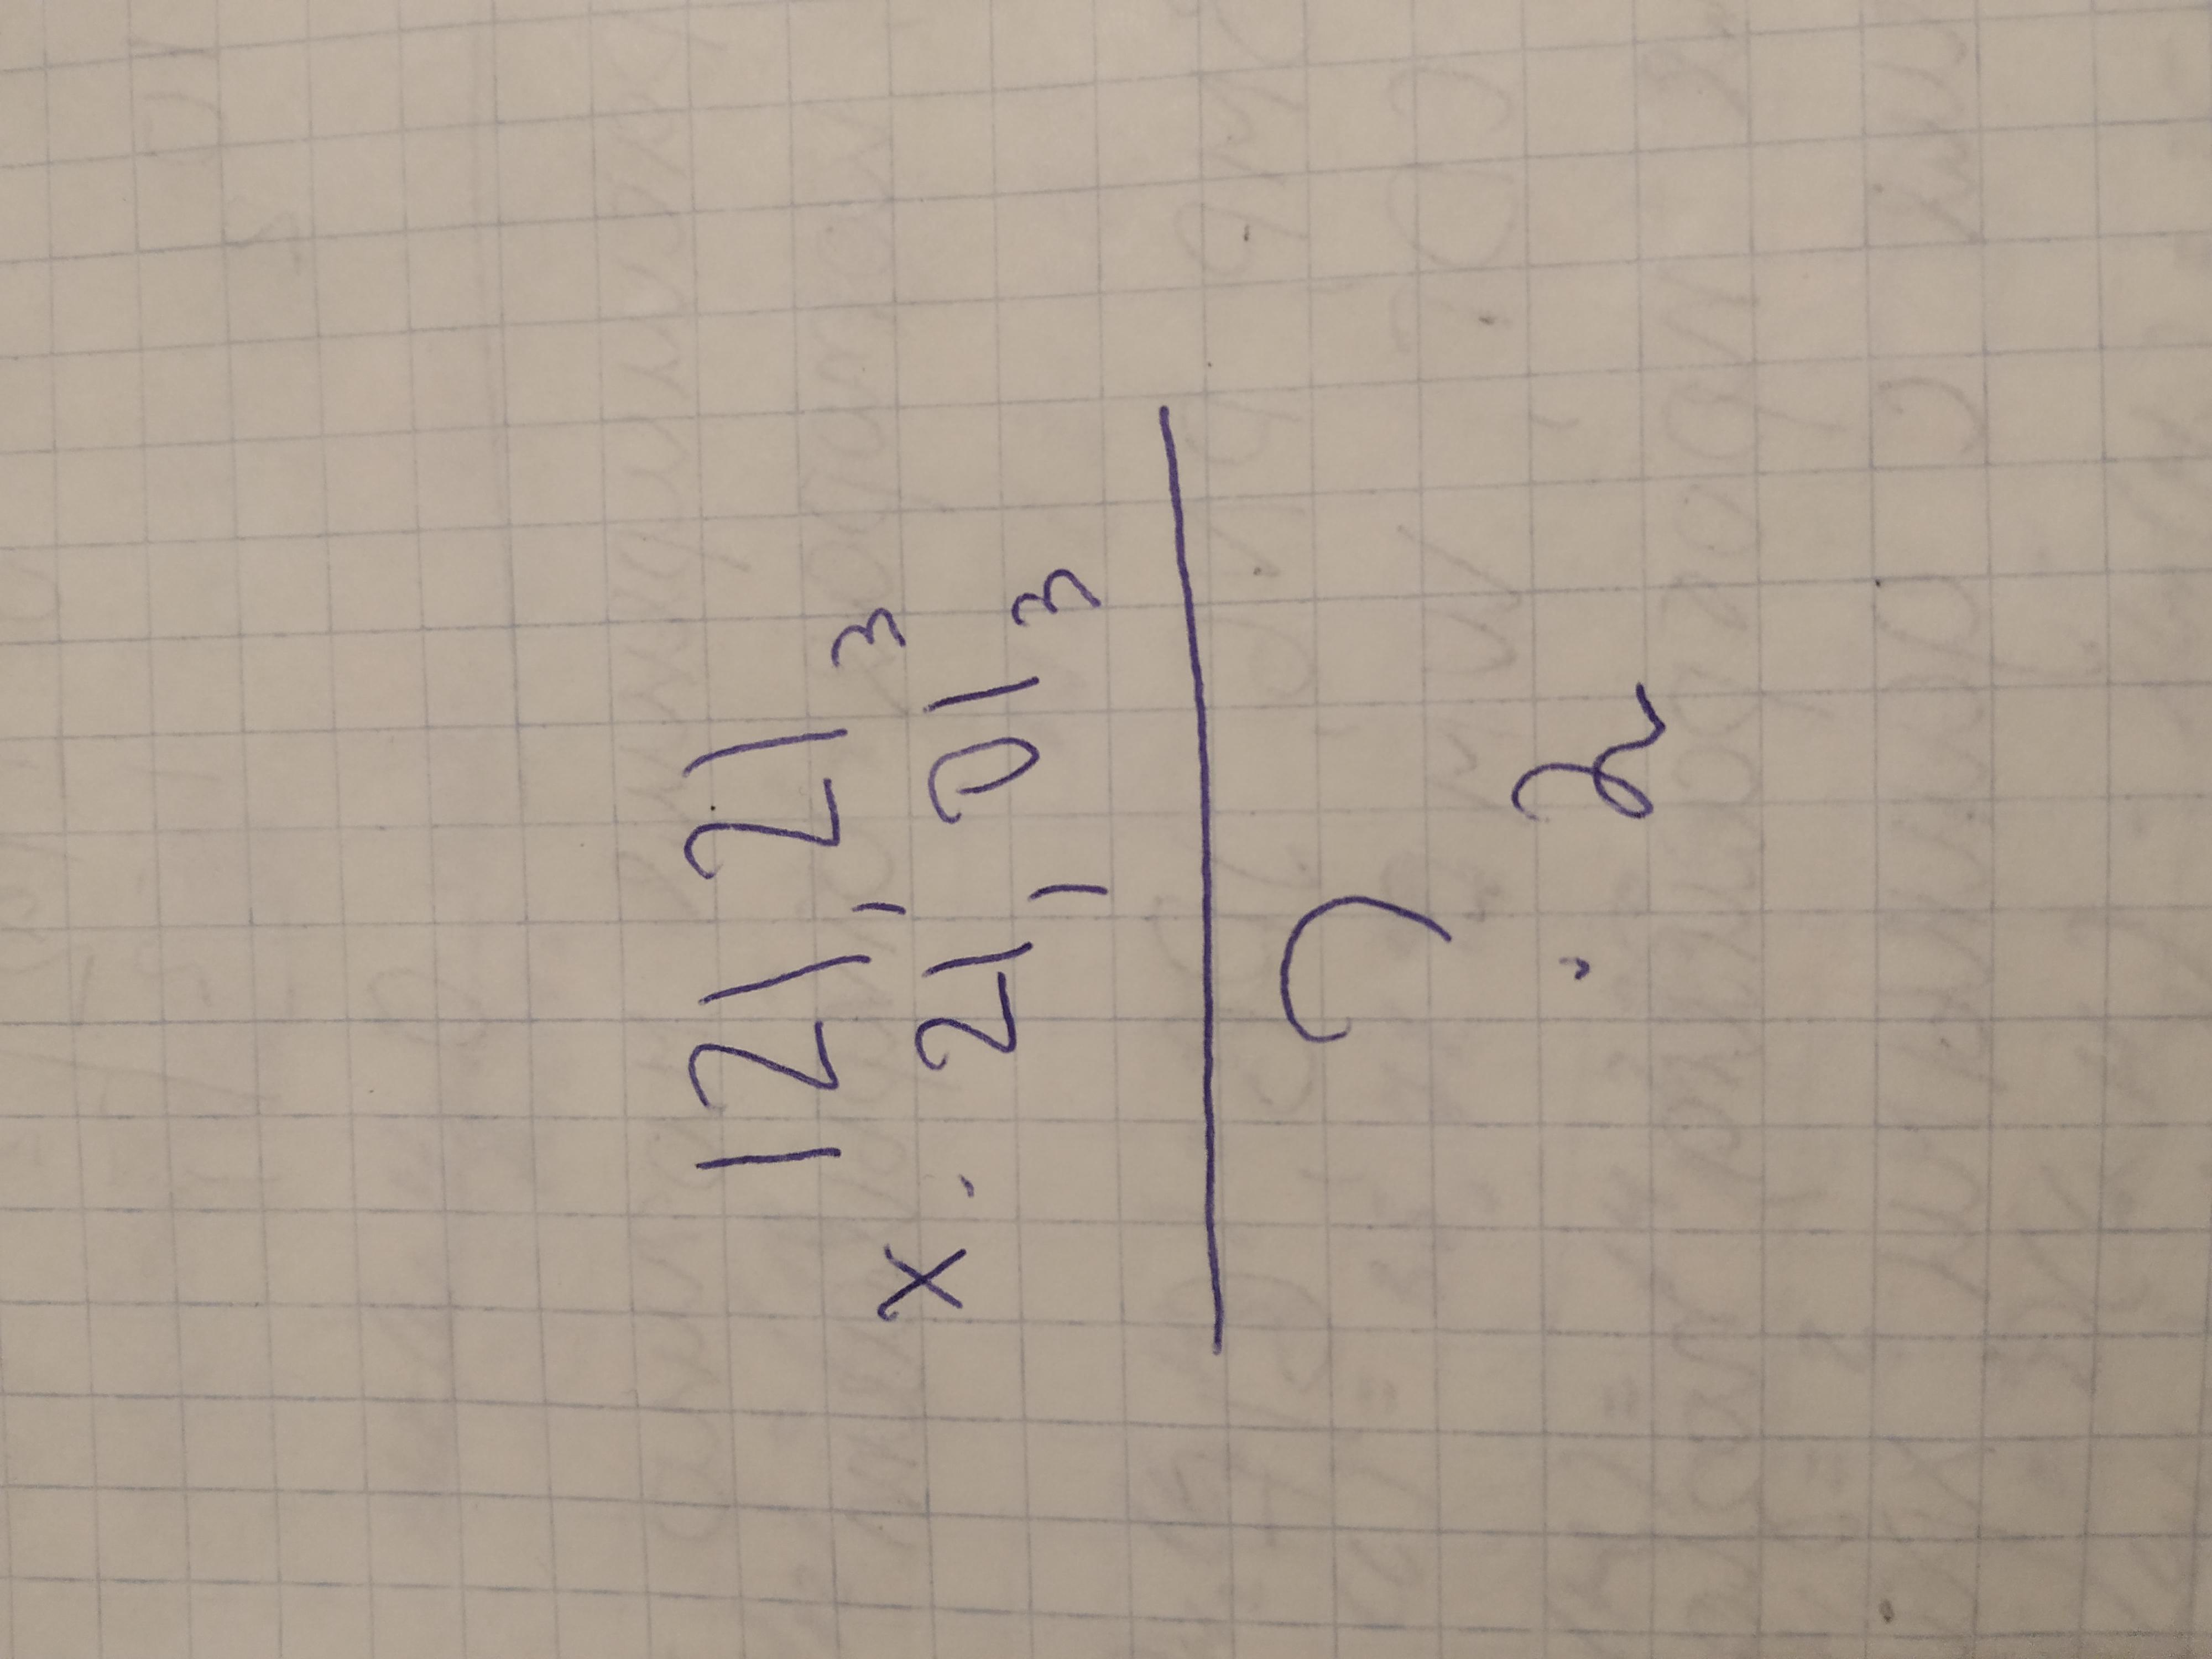 121,21₃
x. 21,01₃
? 2